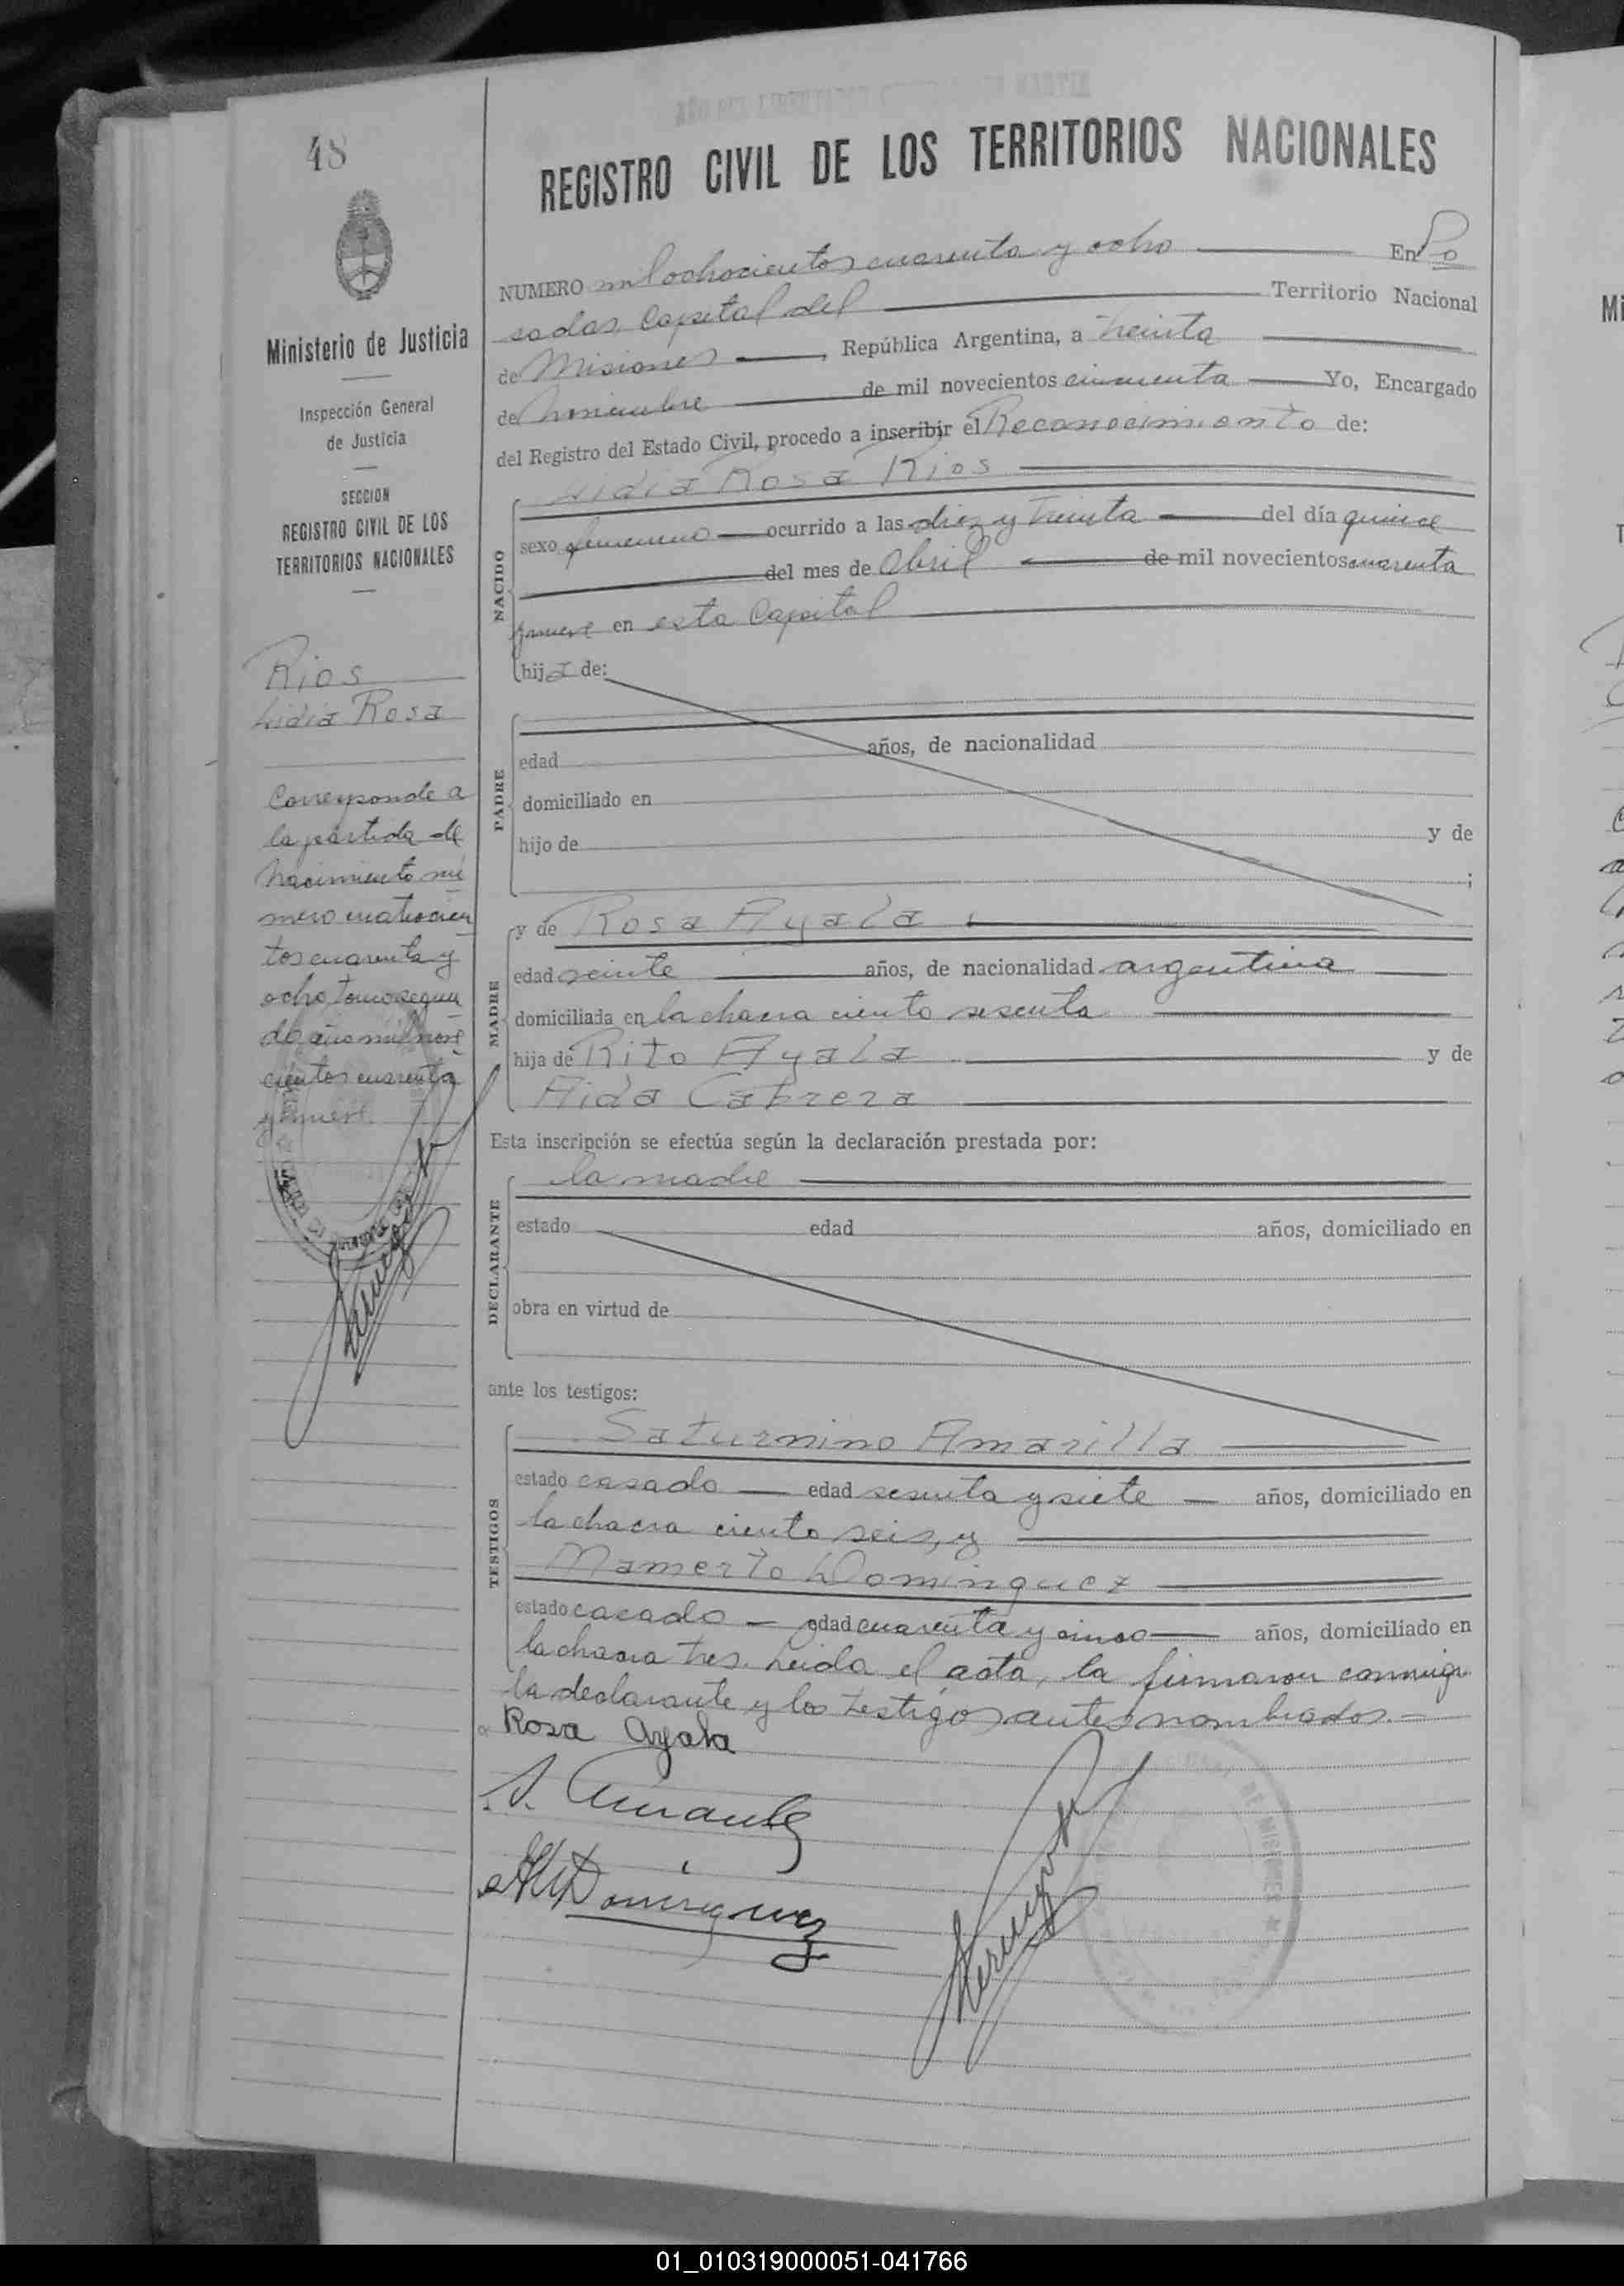 48
REGISTRO CIVIL DE LOS TERRITORIOS NACIONALES
Ministerio de Justicia
Inspección General
de Justicia
SECCION
REGISTRO CIVIL DE LOS
TERRITORIOS NACIONALES
Rios
Lidia Rosa
Corresponde a
la partida de
Nacimiento nú
mero cuatrocien
tos cuarenta y
ocho tomo segun
do año mil nove
cientos cuarenta
y nueve.
NUMERO mil ochocientos cuarenta y ocho En Po
sadas, Capital del Territorio Nacional
de Misiones, República Argentina, a treinta
de noviembre de mil novecientos cincuenta Yo, Encargado
del Registro del Estado Civil, procedo a inscribir el Reconocimiento de:
Lidia Rosa Rios
NACIDO
sexo femenino ocurrido a las diez y treinta del día quince
del mes de Abril de mil novecientos cuarenta
y nueve en esta Capital
hija de:
PADRE
edad años, de nacionalidad
domiciliado en
hijo de y de
;
MADRE
y de Rosa Ayala
edad veinte años, de nacionalidad argentina
domiciliada en la chacra ciento sesenta
hija de Rito Ayala y de
Aida Cabrera
Esta inscripción se efectúa según la declaración prestada por:
DECLARANTE
la madre
estado edad años, domiciliado en
obra en virtud de
ante los testigos:
TESTIGOS
Saturnino Amarilla
estado casado edad sesenta y siete años, domiciliado en
la chacra ciento seis, y
Mamerto Dominguez
estado casado edad cuarenta y cinco años, domiciliado en
la chacra tres. Leida el acta, la firmaron conmigo
la declarante y los testigos antes nombrados.-
Rosa Ayala
Dominguez
DE MISIONES
01_010319000051-041766